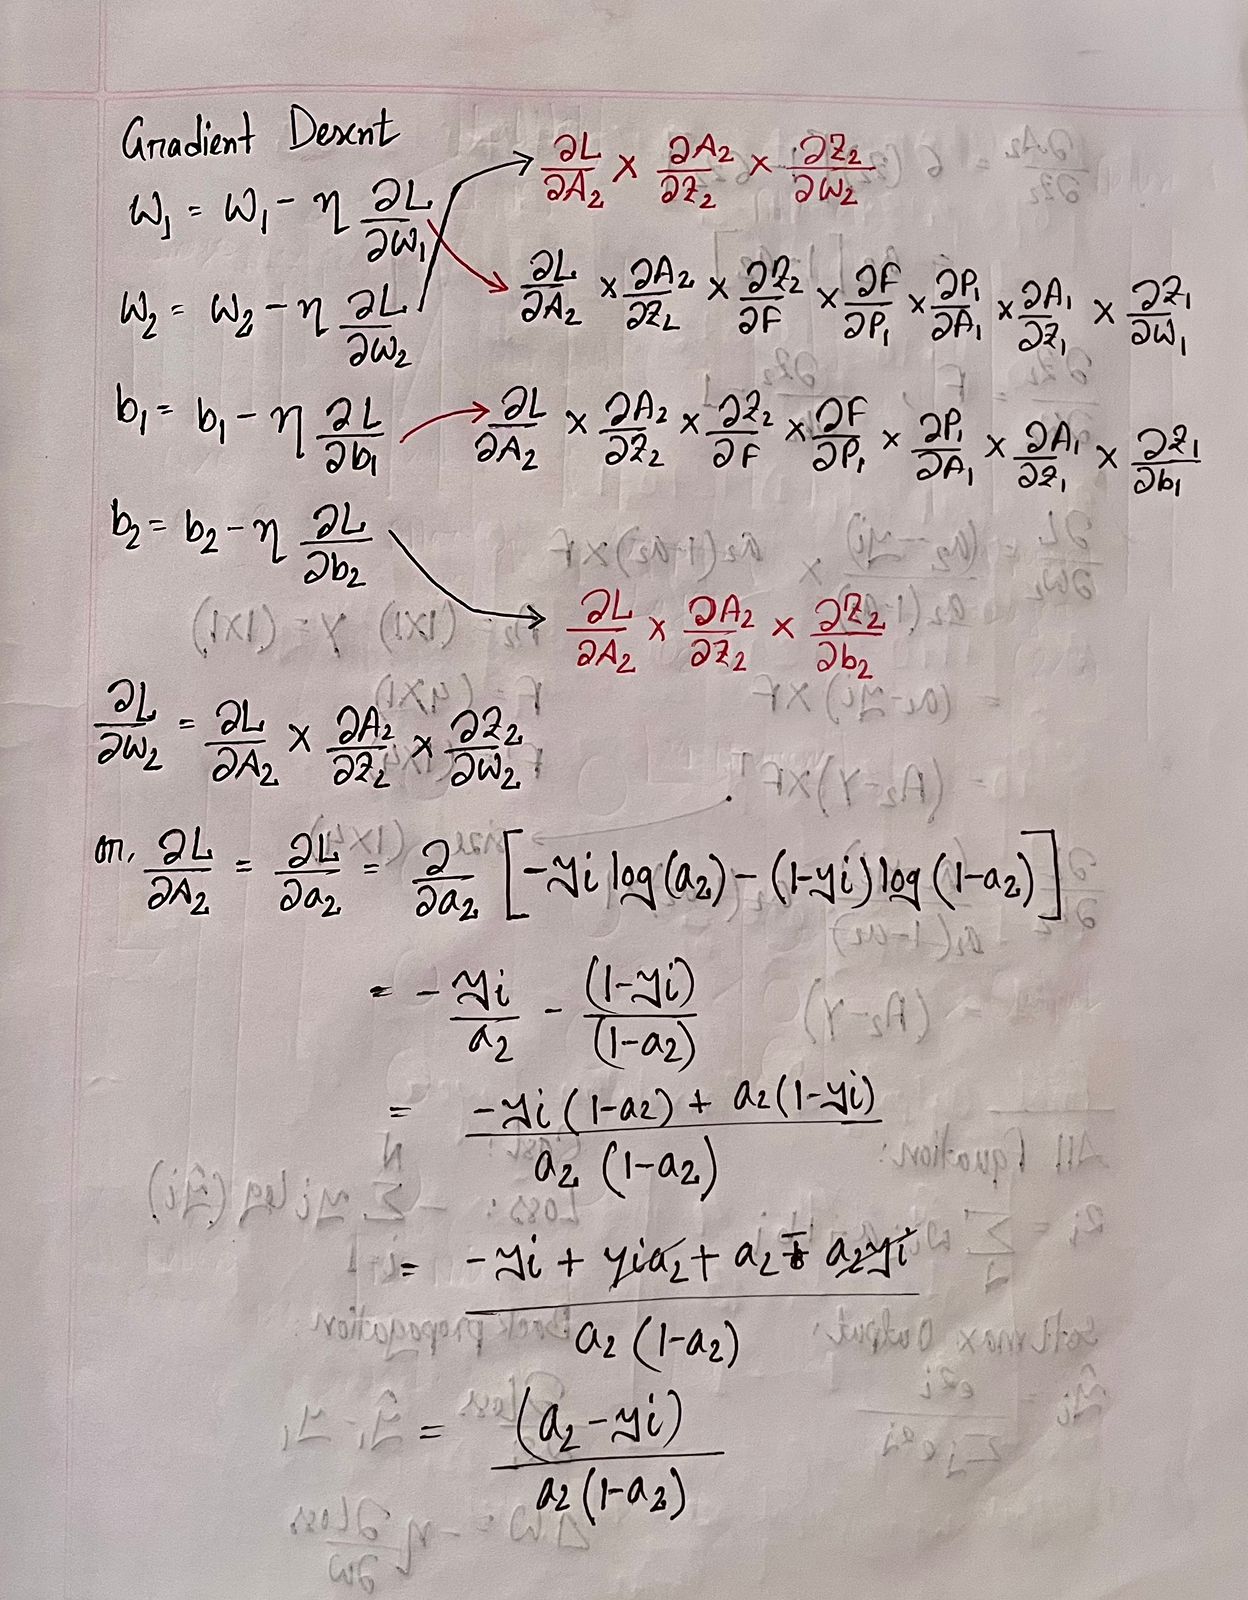 Gradient Descnt
∂L/∂A₂ × ∂A₂/∂Z₂ × ∂Z₂/∂W₂
W₁ = W₁ - η ∂L/∂W₁
∂L/∂A₂ × ∂A₂/∂Z₂ × ∂Z₂/∂F × ∂F/∂P₁ × ∂P₁/∂A₁ × ∂A₁/∂Z₁ × ∂Z₁/∂W₁
W₂ = W₂ - η ∂L/∂W₂
b₁ = b₁ - η ∂L/∂b₁
∂L/∂A₂ × ∂A₂/∂Z₂ × ∂Z₂/∂F × ∂F/∂P₁ × ∂P₁/∂A₁ × ∂A₁/∂Z₁ × ∂Z₁/∂b₁
b₂ = b₂ - η ∂L/∂b₂
∂L/∂A₂ × ∂A₂/∂Z₂ × ∂Z₂/∂b₂
∂L/∂W₂ = ∂L/∂A₂ × ∂A₂/∂Z₂ × ∂Z₂/∂W₂
or, ∂L/∂A₂ = ∂L/∂a₂ = ∂/∂a₂ [-yi log(a₂) - (1-yi) log(1-a₂)]
= - yi/a₂ - (1-yi)/(1-a₂)
= (-yi(1-a₂) + a₂(1-yi))/(a₂(1-a₂))
= (-yi + yia₂ + a₂ - a₂yi)/(a₂(1-a₂))
= (a₂-yi)/(a₂(1-a₂))